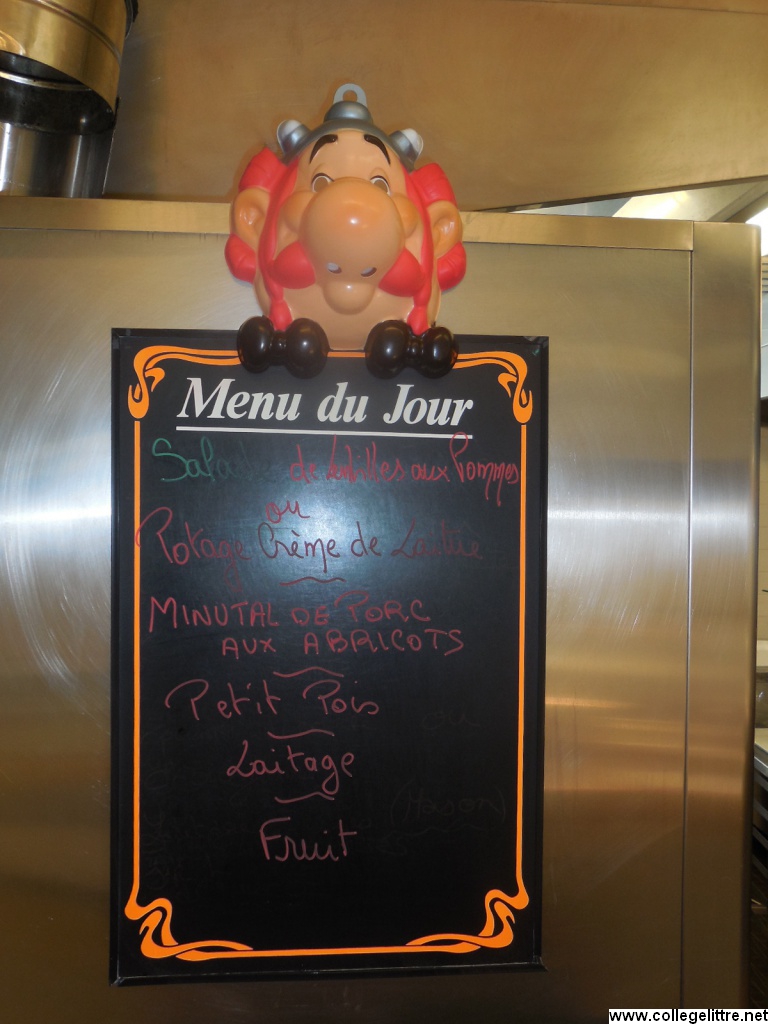 Menu du Jour
Salade de Lentilles aux Pommes
ou
Potage Crème de Laitue
MINUTAL DE PORC
AUX ABRICOTS
Petit Pois
Laitage
Fruit
www.collegelittre.net